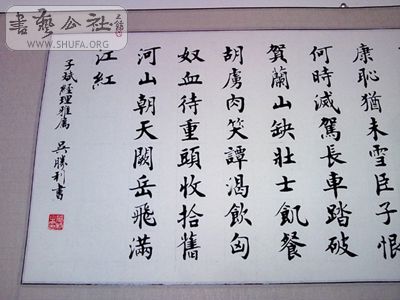 書藝公社
WWW.SHUFA.ORG
康恥猶未雪臣子恨
何時滅駕長車踏破
賀蘭山缺壯士飢餐
胡虜肉笑譚渴飲匈
奴血待重頭收拾舊
河山朝天闕岳飛滿
江紅
子斌經理雅屬 吳勝利書